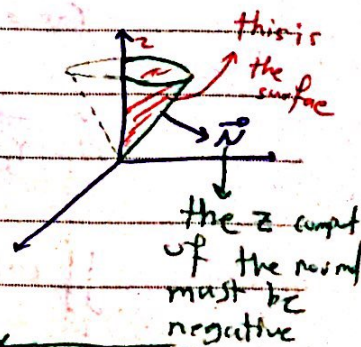 z
this is
the
surface
N
the z
of the normal
must be
negative